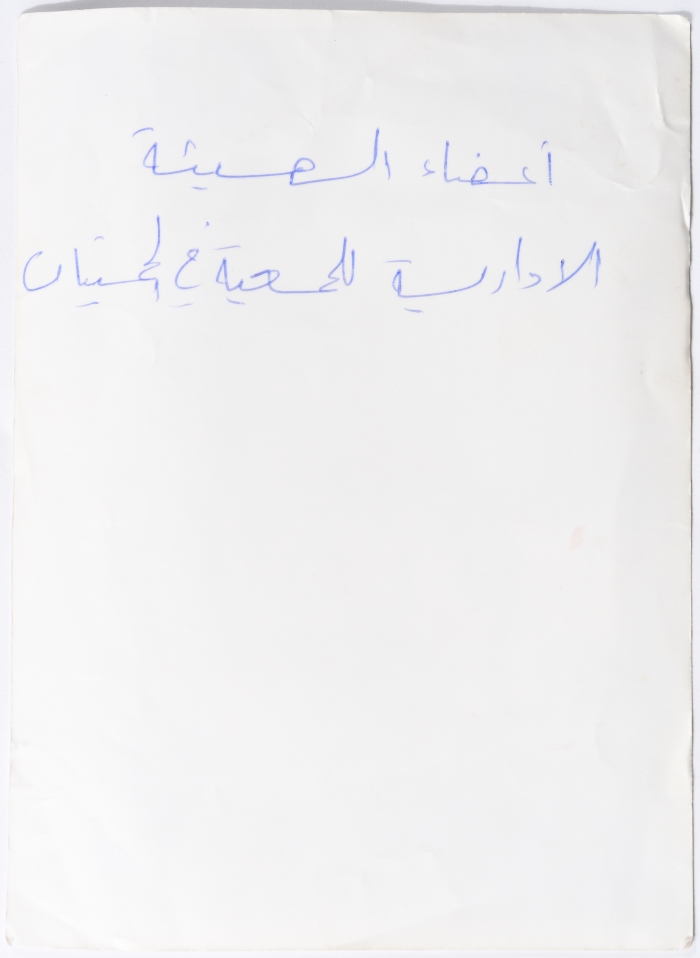 أعضاء الهيئة
الادارية للجمعية في الخمسينات